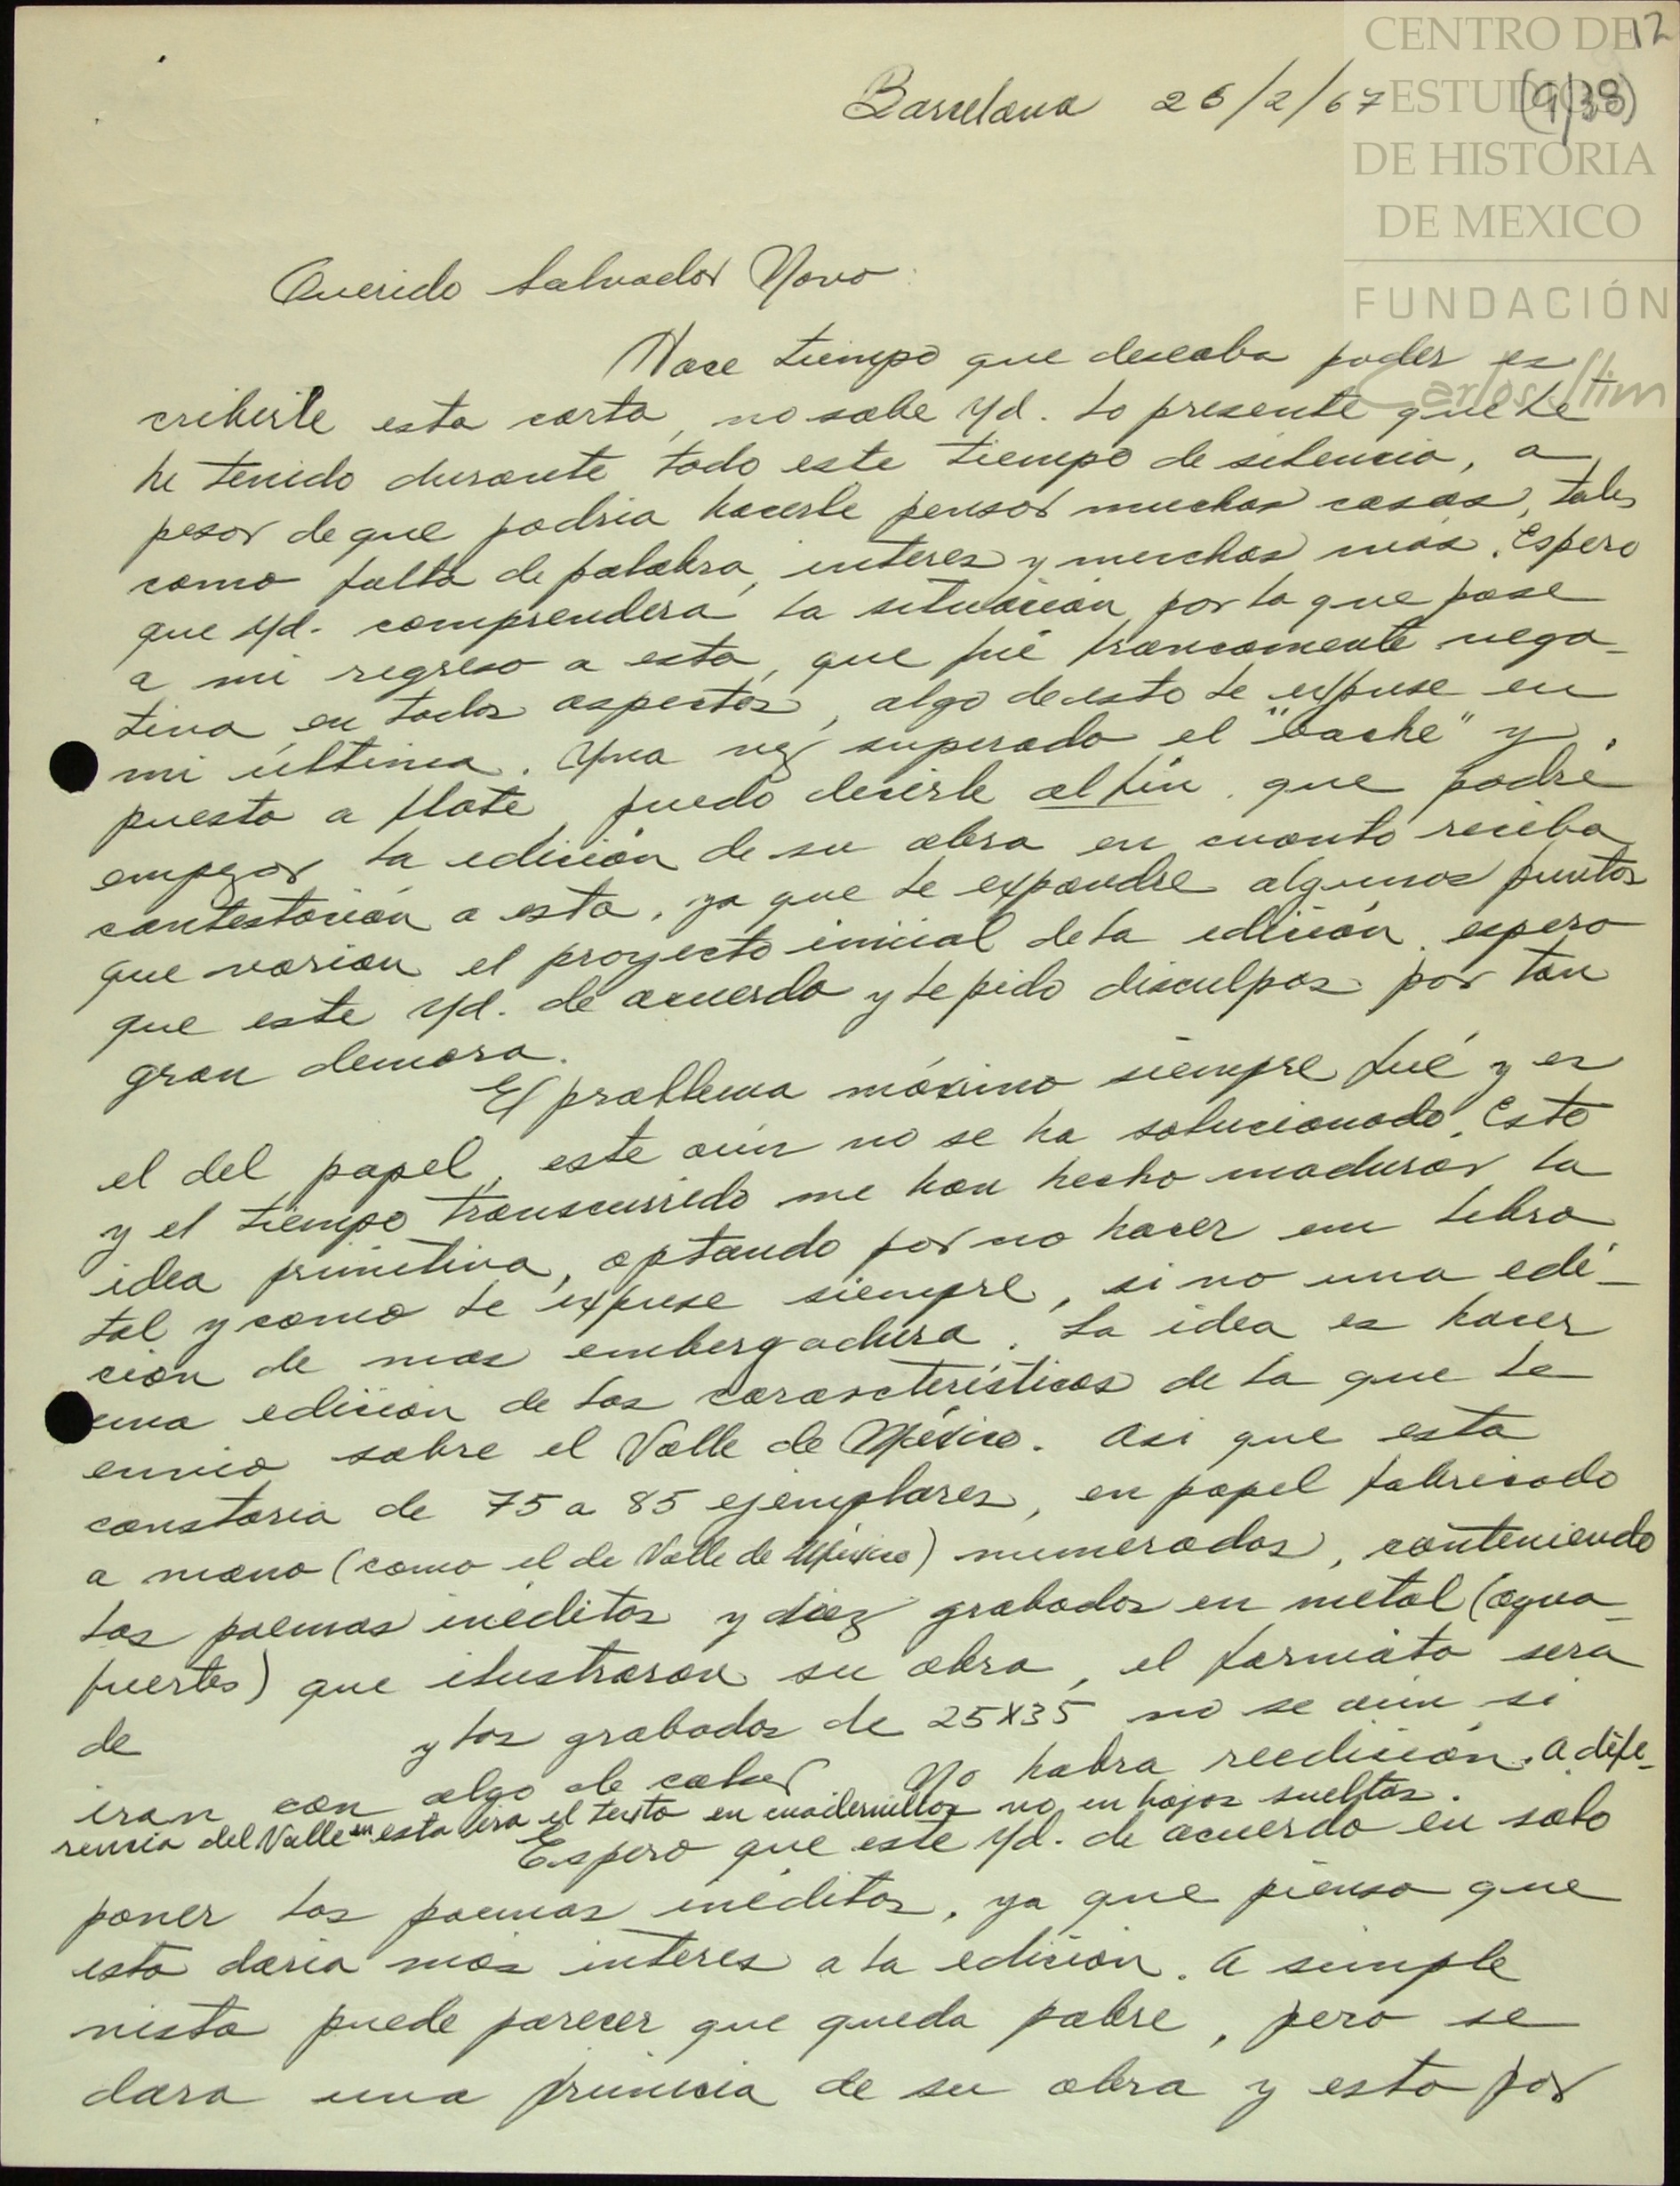 12
(9/38)
CENTRO DE
ESTUDIOS
DE HISTORIA
DE MEXICO
FUNDACIÓN
Carlos Slim
Barcelona 26/2/67
Querido Salvador Novo:
Hace tiempo que deseaba poder es
cribirle esta carta, no sabe Vd. lo presente que le
he tenido durante todo este tiempo de silencio, a
pesar de que podria hacerle pensar muchas cosas, tales
como falta de palabra, interes y muchas más. Espero
que Vd. comprenderá la situación por la que pase
a mi regreso a esta, que fué francamente nega-
tiva en todos aspectos, algo de esto le expuse en
mi última. Una vez superado el "bache" y
puesto a flote, puedo decirle al fin, que podré
empezar la edición de su obra en cuanto reciba
contestación a esta, ya que le expondre algunos puntos
que varian el proyecto inicial de la edición, espero
que este Vd. de acuerdo y le pido disculpas por tan
gran demora.
El problema máximo siempre fué y es
el del papel, este aún no se ha solucionado. Esto
y el tiempo transcurrido me han hecho madurar la
idea primitiva, optando por no hacer un libro
tal y como le expuse siempre, si no una edi-
ción de mas embergadura. La idea es hacer
una edición de las caracteristicas de la que le
envio sobre el Valle de México. Asi que esta
constaria de 75 a 85 ejemplares, en papel fabricado
a mano (como el de Valle de México) numerados, conteniendo
los poemas inéditos y diez grabados en metal (agua-
fuertes) que ilustraran su obra, el formato sera
de y los grabados de 25X35 no se aún si
iran con algo de color. No habra reedición. A dife-
rencia del Valle en esta ira el texto en cuadernillos no en hojas sueltas.
Espero que este Vd. de acuerdo en solo
poner los poemas inéditos, ya que pienso que
esto daria más interes a la edición. A simple
vista puede parecer que queda pobre, pero se
dara una primicia de su obra y esto por